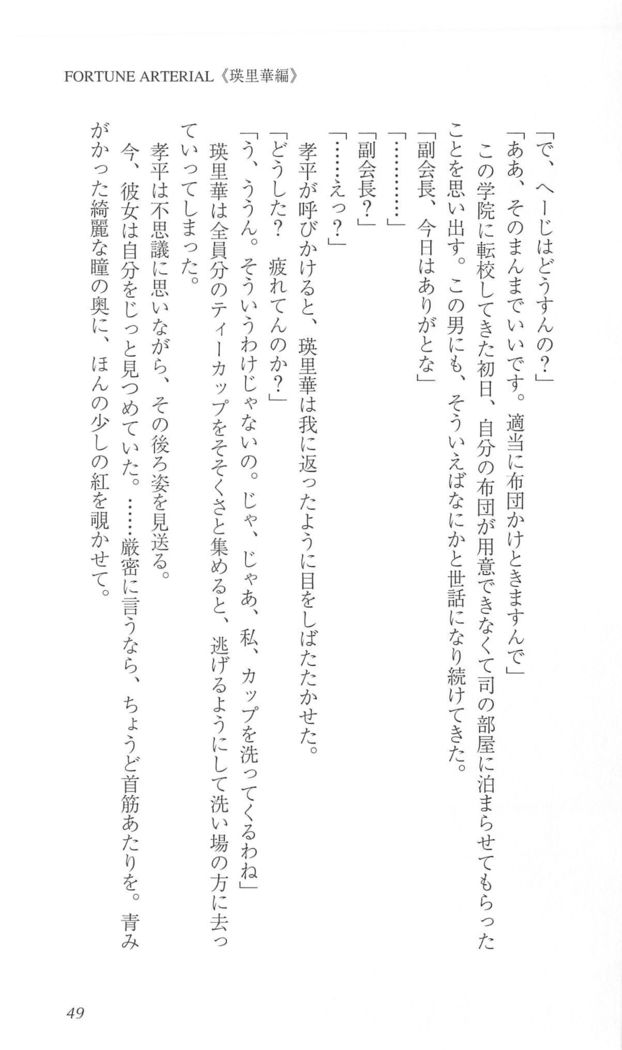 FORTUNE ARTERIAL《瑛里華編》
「で、へーじはどうすんの？」
「ああ、そのまんまでいいです。適当に布団かけときますんで」
　この学院に転校してきた初日、自分の布団が用意できなくて司の部屋に泊まらせてもらった
ことを思い出す。この男にも、そういえばなにかと世話になり続けてきた。
「副会長、今日はありがとな」
「…………」
「副会長？」
「……えっ？」
　孝平が呼びかけると、瑛里華は我に返ったように目をしばたたかせた。
「どうした？　疲れてんのか？」
「う、ううん。そういうわけじゃないの。じゃ、じゃあ、私、カップを洗ってくるわね」
　瑛里華は全員分のティーカップをそそくさと集めると、逃げるようにして洗い場の方に去っ
ていってしまった。
　孝平は不思議に思いながら、その後ろ姿を見送る。
　今、彼女は自分をじっと見つめていた。……厳密に言うなら、ちょうど首筋あたりを。青み
がかった綺麗な瞳の奥に、ほんの少しの紅を覗かせて。
49